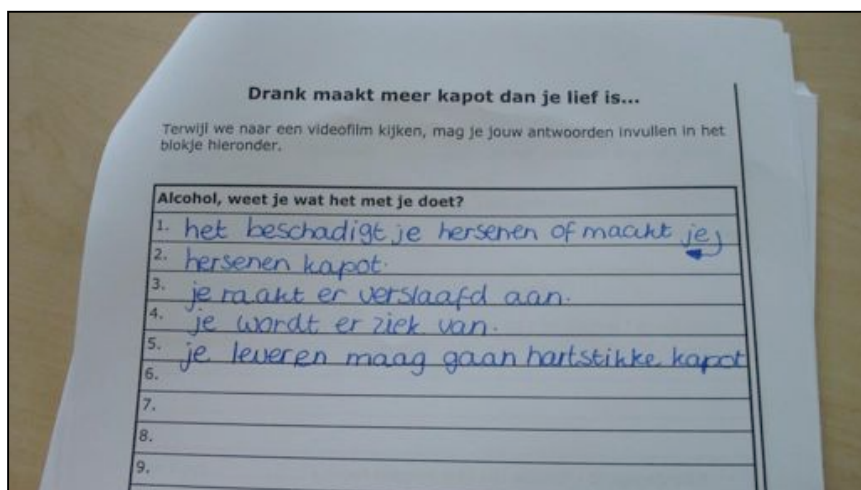 Drank maakt meer kapot dan je lief is...
Terwijl we naar een videofilm kijken, mag je jouw antwoorden invullen in het
blokje hieronder.
Alcohol, weet je wat het met je doet?
1. het beschadigt je hersenen of maakt je
2. hersenen kapot.
3. je raakt er verslaafd aan.
4. je wordt er ziek van.
5. je lever en maag gaan hartstikke kapot
6.
7.
8.
9.